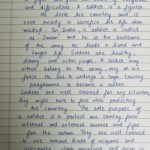 and difficulties. A soldier is a fighter.
He loves his country and is
ever ready to sacrifice his life when
needed. In India, a soldier is called
as Jawan and he is the backbone
of the army. He leads a hard and
tough life. Soldiers are healthy,
strong and active people. A soldier may
either belong to the army, navy or air
force. He has to undergo a tough training
programme to become a soldier.
Soldiers are well trained for any situation
they might have to face while protecting
the country. The sole purpose of
a soldier is to protect our country from
internal and external enemies and fight
for the nation. They are well trained
to use various kinds of weapons and